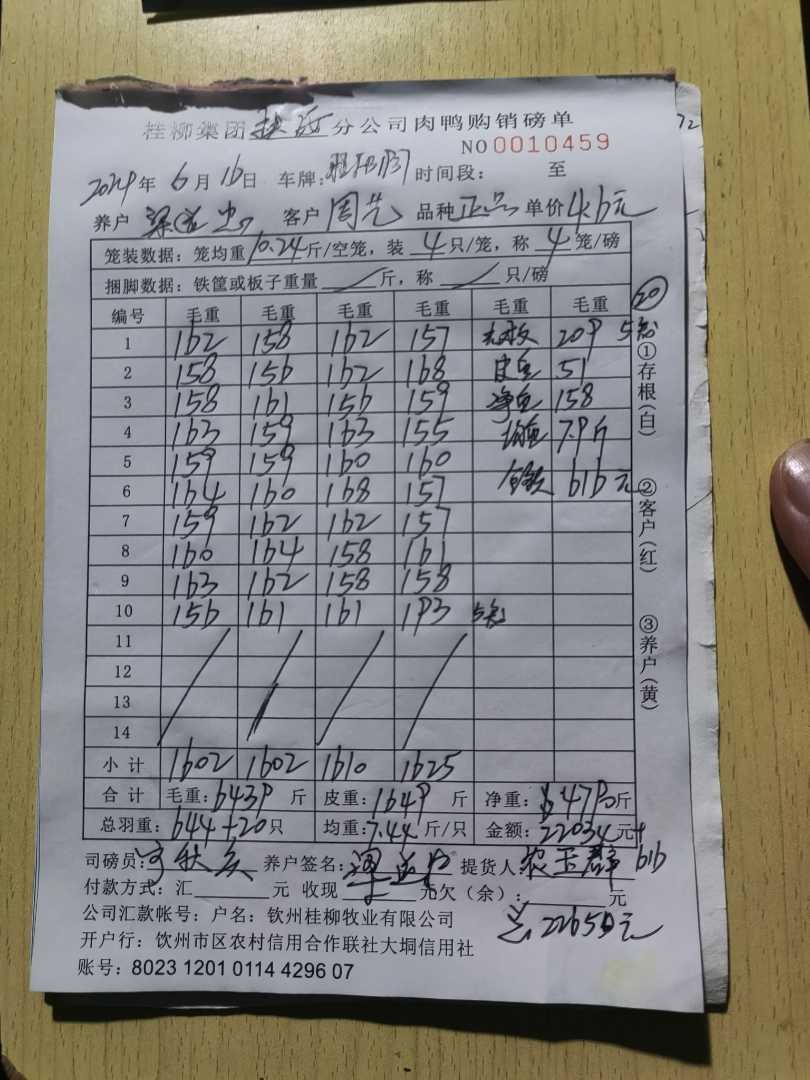 桂柳集团 分公司肉鸭购销磅单
NO 0010459
72
2024年 6月16日 车牌: 时间段: 至
养户 梁 忠 客户 周先 品种 正品 单价 4.6元
笼装数据：笼均重 10.24 斤/空笼，装 4 只/笼，称 4 笼/磅
捆脚数据：铁筐或板子重量 / 斤，称 / 只/磅
编号 毛重 毛重 毛重 毛重 毛重 毛重 20
1 162 158 162 157 209 5笼
2 158 156 162 168 皮重 51
3 158 161 156 159 净重 158
4 163 159 163 155 均重 7.9斤
5 159 159 160 160
6 164 160 168 157 金额 616元
7 159 162 162 157
8 160 164 158 161
9 163 162 158 158
10 156 161 161 193 5笼
11
12
13
14
小计 1602 1602 1610 1625
合计 毛重: 6439 斤 皮重: 1649 斤 净重: 4790 斤
总羽重: 644+20 只 均重: 7.44 斤/只 金额: 22034 元+
616
司磅员: 养户签名: 梁 忠 提货人 农玉群
付款方式：汇 元 收现 元欠（余）： 元
公司汇款帐号：户名：钦州桂柳牧业有限公司
总22650元
开户行：钦州市区农村信用合作联社大垌信用社
账号：8023 1201 0114 4296 07
①存根(白)
②客户(红)
③养户(黄)